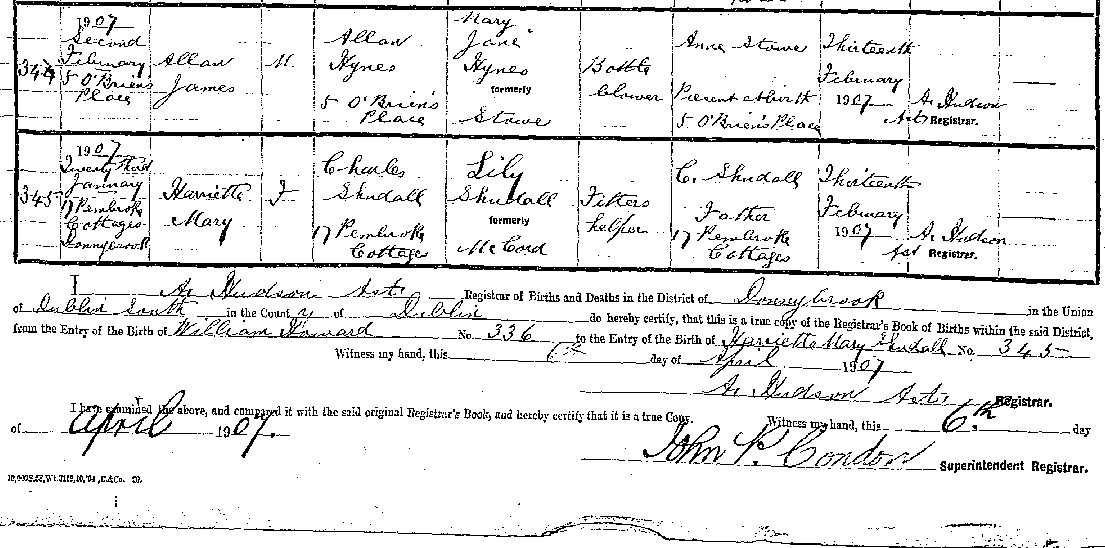 344
1907
Second
February
5 O'Brien's
Place
Allan
James
M.
Allan
Hynes
5 O'Brien's
Place
Mary
Jane
Hynes
formerly
Stowe
Bottle
blower
Anne Stowe
Present at birth
5 O'Brien's Place
Thirteenth
February
1907
Ar Hudson
Asst Registrar.
345
1907
Twenty third
January
17 Pembroke
Cottages
Donnybrook
Harriette
Mary
F
Charles
Skudall
17 Pembroke
Cottages
Lily
Skudall
formerly
McCord
Fitters
helper
C. Skudall
Father
17 Pembroke
Cottages
Thirteenth
February
1907
Ar Hudson
Asst Registrar.
I Ar Hudson Asst Registrar of Births and Deaths in the District of Donnybrook in the Union
of Dublin South in the County of Dublin do hereby certify, that this is a true copy of the Registrar's Book of Births within the said District,
from the Entry of the Birth of William Howard No. 336 to the Entry of the Birth of Harriette Mary Skudall No. 345
Witness my hand, this 6th day of April 1907
Ar Hudson Asst Registrar.
I have examined the above, and compared it with the said original Registrar's Book, and hereby certify that it is a true Copy. Witness my hand, this 6th. day
of April 1907.
John P. Condon Superintendent Registrar.